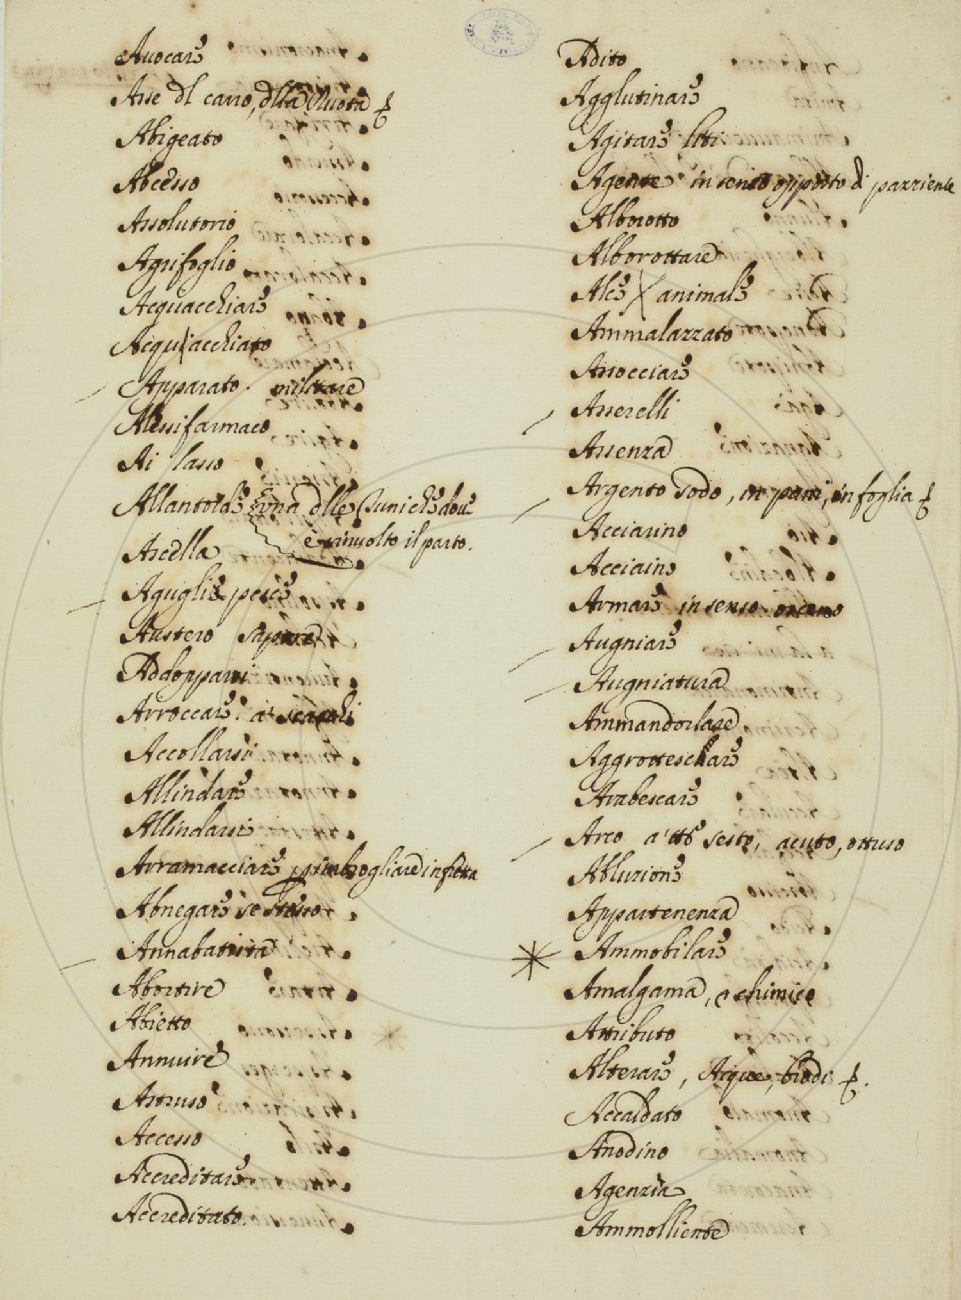 Auocare
Asse dl carro, dlla Ruota
Abigeato
Abcesso
Assolutorio
Agrifoglio
Acquacchiare
Acquacchiato
Apparato militare
Alessifarmaco
Ai lasso
Allantoide una dlle Tuniche
è rinuolto il parto.
Ascella
Aguglie pesce
Austero sapore
Addopparsi
Arroccare a scacchi
Accollarsi
Allindare
Allindarsi
Arramacciare, imbrogliare in fretta
Abnegare se stesso
Annabatista
Abortire
Abietto
Annuire
Astruso
Accesso
Accreditare
Accreditato.
Adito
Agglutinare
Agitare liti
Agente in senso opposto di pazziente
Alborotto
Alborottare
Alce animale
Ammalazzato
Associare
Asserelli
Assenza
Argento sodo, in pani, in foglia
Acciarino
Acciaino
Armare in senso osceno
Augniare
Augniatura
Ammandorlare
Aggrottescare
Arabescare
Arco a tto sesto, acuto, ottuso
Abluzione
Appartenenza
Ammobilare
Amalgama, chimico
Attributo
Alterare, Acque, brodi
Accaldato
Anodino
Agenzia
Ammolliente